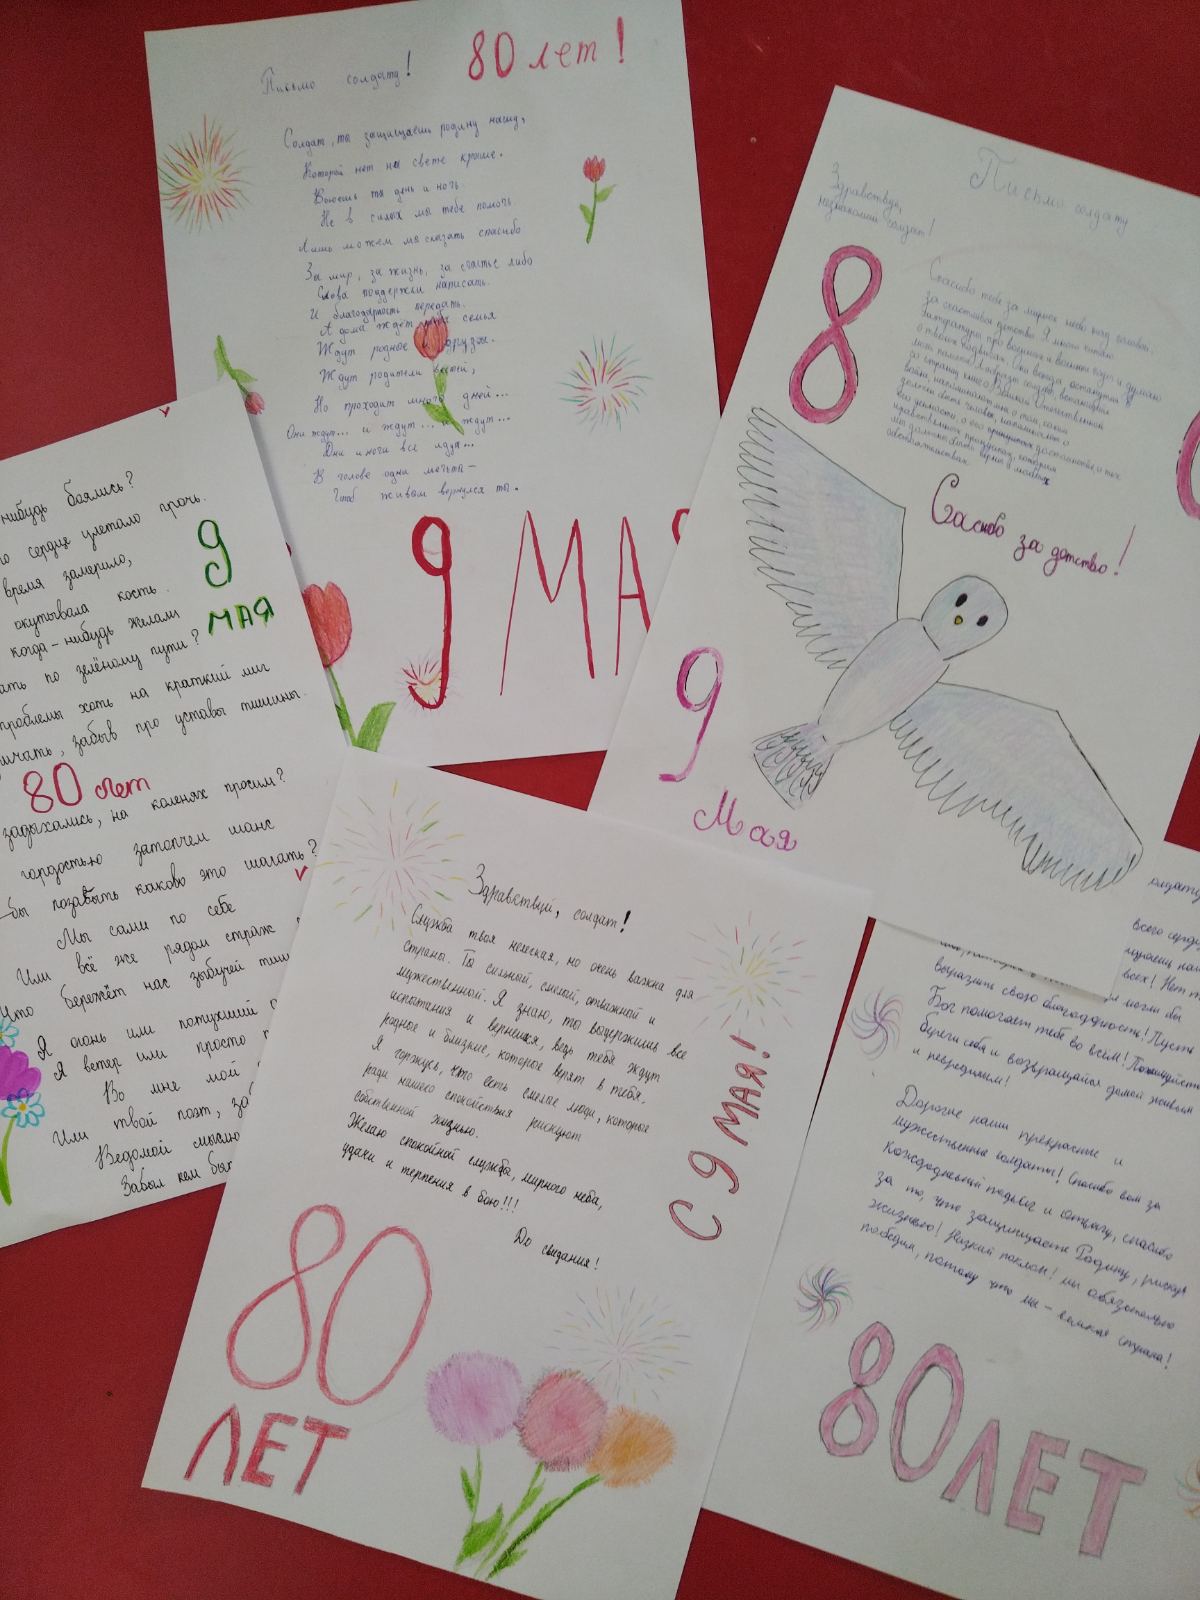 Письмо солдату!
80 лет!
Солдат, ты защищаешь родину нашу,
Которой нет на свете краше.
Воюешь ты день и ночь
Не в силах мы тебе помочь.
Лишь можем мы сказать спасибо
За мир, за жизнь, за счастье либо
Слова поддержки написать.
И благодарность передать.
А дома ждёт семья
Ждут родные и друзья.
Ждут родители вестей,
Но проходит много дней...
Они ждут... и ждут... и ждут...
Дни и ночи все идут...
В голове одни мечты-
Чтоб живым вернулся ты.
9 МАЯ
Письмо солдату
Здравствуй,
незнакомый солдат!
8
Спасибо тебе за мирное небо над головой,
за счастливое детство. Я много читаю
литературы про военных и военные годы и думаю
о твоих подвигах. Они всегда останутся в
моей памяти. Образ солдата, встающего
со страниц книг о Великой Отечественной
войне, напоминает мне о том, каким
должен быть человек, напоминает о
его ценности, о его принципах достоинства, о тех
нравственных принципах, которым
мы должны быть верны в любых
обстоятельствах.
Спасибо за детство!
9
Мая
нибудь боялись?
сердце улетало прочь.
время замерло,
окутывала кость.
когда-нибудь желали
ать по зелёному пути?
проблемы хоть на краткий миг
ричать, забыв про уставы тишины.
9
МАЯ
80 лет
задыхались, на коленях просим?
гордостью затопчем шанс
бы позабыть каково это шагать?
Мы сами по себе
Или всё же рядом страж
Что бережёт нас зыбучей тиши
Я огонь или потухший
Я ветер или просто
Во мне мой
Или твой поэт, за
Ведомой мыслю
Забыл кем был
Здравствуй, солдат!
Служба твоя нелегкая, но очень важна для
страны. Ты сильный, смелый, отважный и
мужественный. Я знаю, ты выдержишь все
испытания и вернешься, ведь тебя ждут
родные и близкие, которые верят в тебя.
Я горжусь, что есть смелые люди, которые
ради нашего спокойствия рискуют
собственной жизнью.
Желаю спокойной службы, мирного неба,
удачи и терпения в бою!!!
До свидания!
С 9 МАЯ!
80
ЛЕТ
олдату
всего сердца
щищаешь нас
всех! Нет т
могли бы
выразить свою благодарность! Пусть
Бог помогает тебе во всём! Пожалуйста
береги себя и возвращайся домой живым
и невредимым!
Дорогие наши прекрасные и
мужественные солдаты! Спасибо вам за
каждодневный подвиг и отвагу, спасибо
за то, что защищаете Родину, рискуя
жизнью! Низкий поклон! Мы обязательно
победим, потому что мы - великая страна!
80 ЛЕТ